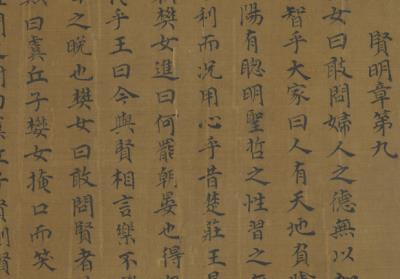 賢明章第九
女曰敢問婦人之德無以加
智乎大家曰人有天地負
陽有聰明聖哲之性習之
利而況用心乎昔楚莊王
樊女進曰何罷朝晏也得
乎王曰今與賢相言樂不
之晚也樊女曰敢問賢者
曰虞丘子樊女掩口而笑
虞丘子賢則賢